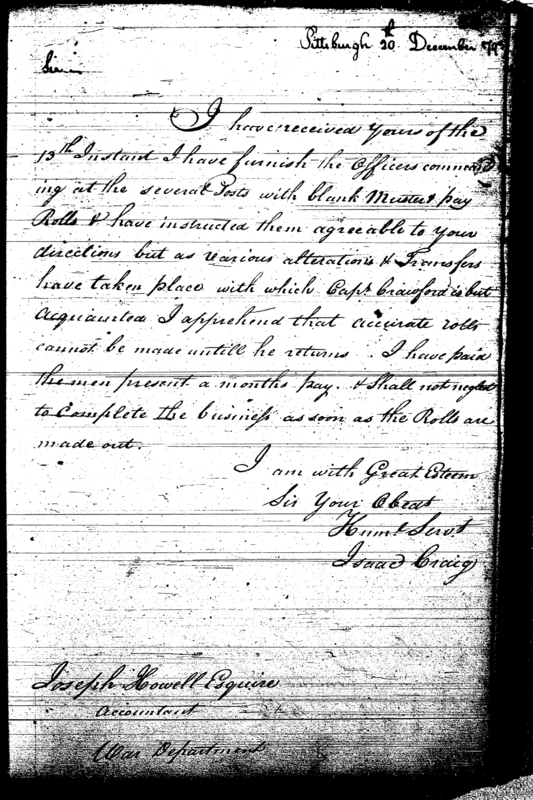 Pittsburgh 20th December 179
Sir
I have received yours of the
13th Instant I have furnish the Officers command
ing at the several Posts with blank Muster & pay
Rolls & have instructed them agreeable to your
directions but as various alterations & Transfers
have taken place with which Capt. Crawford is but
acquainted I apprehend that accurate rolls
cannot be made untill he returns . I have paid
the men present a months pay. & shall not neglect
to complete the business as soon as the Rolls are
made out.
I am with Great Esteem
Sir Your Obedt
Huml Servt
Isaac Craig
Joseph Howell Esquire
Accountant
War Department